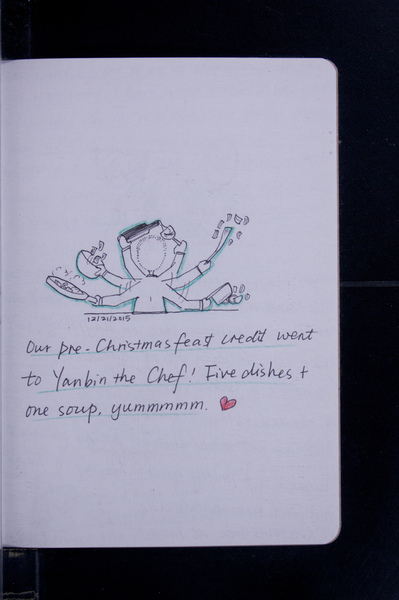 12/21/2015
Our pre-Christmas feast credit went
to Yanbin the Chef! Five dishes +
one soup, yummmmm.